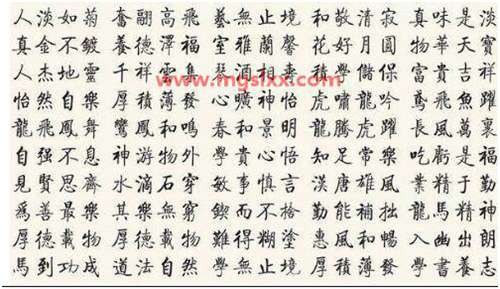 人淡如菊 奮翮高飛 藝無止境 和敬清寂 真味是淡
真金不鍍 養德澤福 室雅蘭馨 花好月圓 物華天寶
人杰地靈 千祥雲集 琴 相 學儲保 富貴吉祥
www.mgslxx.com
怡然自樂 厚積薄發 心曠神怡 虎嘯龍吟 鳶飛魚躍
龍飛鳳舞 鸞鳳和鳴 春和景明 龍騰虎躍 長風萬裏
自强不息 神游物外 學貴心悟 知足常樂 吃虧是福
見賢思齊 水滴石穿 敏事慎言 漢唐雄風 業精于勤
爲善最樂 其樂無窮 鍥而不捨 勤能補拙 龍馬精神
厚德載物 厚德載物 難得糊塗 惠風和暢 入幽出朗
馬到功成 道法自然 學無止境 厚積薄發 學書養志